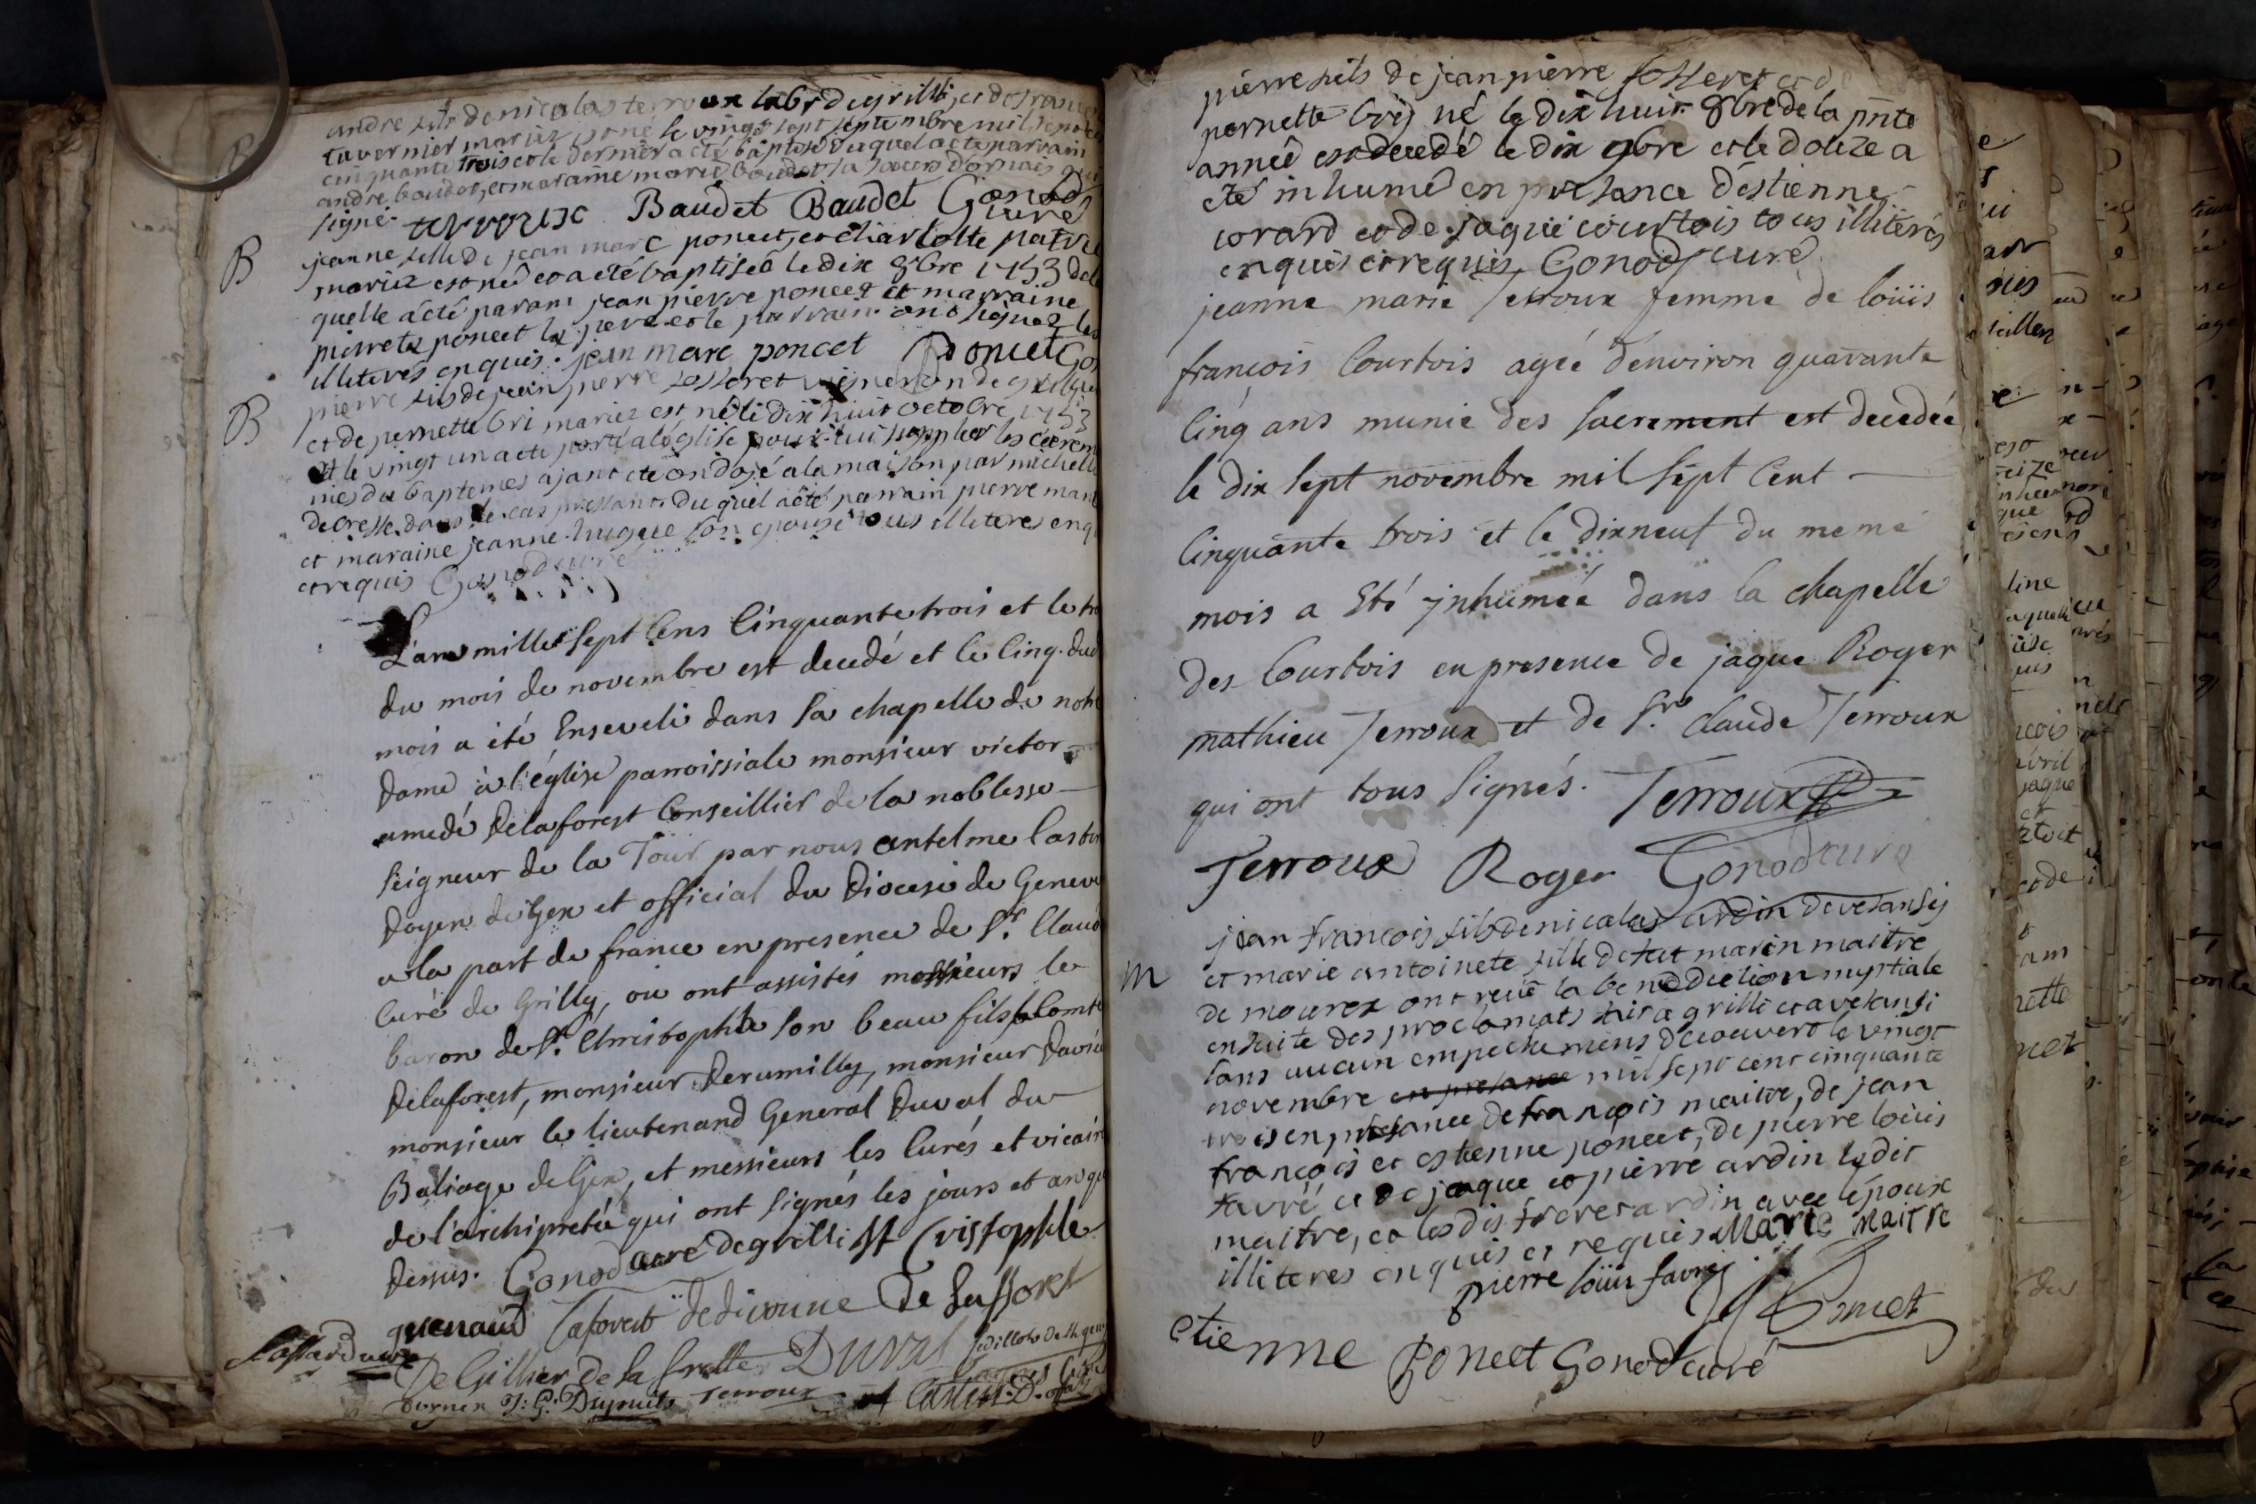 andre fils de nicolas terroux labr de grilli, et de fran
tavernier mariez est né le vingt sept septembre mil sept ce
cinquante trois et le dernier a eté baptisé duquel a eté parrain
andre baudet, et maraine marie baudet sa soeur
signé. terroux Baudet Baudet Gonod curé
B
jeanne fille de jean marc poncet, et charlotte patru
mariez est née et a eté baptiséé le dix 8bre 1753 de la
quelle a eté parain jean pierre poncet et marraine
pierrete poncet le pere et le parrain ont signez les
illiteres enquis. jean marc poncet Poncet Gon
B
pierre fils de jean pierre vigneron de grilli
et de pernette bri mariez est né le dix huit octobre 1753
et le vingt un a eté porté a léglise pour lui suppleer les cerem
nies du baptemes ajant eté ondojé a la maison par michelle
decresse dans le cas pressant. Du quel a eté parrain pierre mani
et maraine jeanne hugue son epouse tous illiteres enq
et requis Gonod curé
L'an mille sept Cens Cinquante trois et le tr
du mois de novembre est decedé et le Cinq dud
mois a été Enseveli dans sa chapelle de notre
dame à l'église parroissiale monsieur victor
amedé Delaforest Conseillier de la noblesse
seigneur de la Tour par nous antelme Castin
doyen de Gex et official du Diocese de Geneve
a la part de france en presence de Sr. Claud
Curé de Grilly, ou ont assistés messieurs le
baron de St. Christophle son beau fils le Comte
Delaforest, monsieur Derumilly, monsieur David
monsieur le lieutenand General Duval du
Baliage de Gex, et messieurs les Curés et vicaire
de l'archipretré qui ont signés les jours et an que
dessus. Gonod curé de grilli St Cristophle
quenaud laforest de divonne De la fforest
Cassard curé De Gillier De la Grille Duval
J: G: Dupuits Terroux Castin D. offal
pierre fils de jean pierre et de
pernette bri né le dix huit 8bre de la pnte
année est decedé le dix 9bre et le douze a
eté inhumé en présance d'éstienne
corard et de jaque courtois tous illiterés
enquis et requis Gonod curé
jeanne marie Terroux femme de loüis
françois Courtois agéé denviron quarante
Cinq ans munie des sacrement est decedéé
le dix sept novembre mil sept Cent
Cinquante trois et le dixneuf du meme
mois a Eté jnhuméé dans la chapelle
des Courtois en presence de jaque Roger
mathieu Terroux et de Sr. Claude Terroux
qui ont tous signés. Terroux
Terroux Roger Gonod curé
jean françois fils de nicolas ardin de vesansij
M
et marie antoinete fille de feut marin maitre
de mourex ont reçüe la benediction nuptiale
ensuite des proclamats fait a grilli et a vesansi
sans aucun empechemens decouvert le vingt
novembre en presance mil sept cent cinquante
trois en présance de françois maitre, de jean
françois et estienne poncet, de pierre loüis
favré et de jaque et pierre ardin ledit
maitre, et les dis freres ardin avec lépoux
illiteres enquis et requis Marie Maitre
pierre loüis favre
Poncet
etienne Poncet Gonod curé